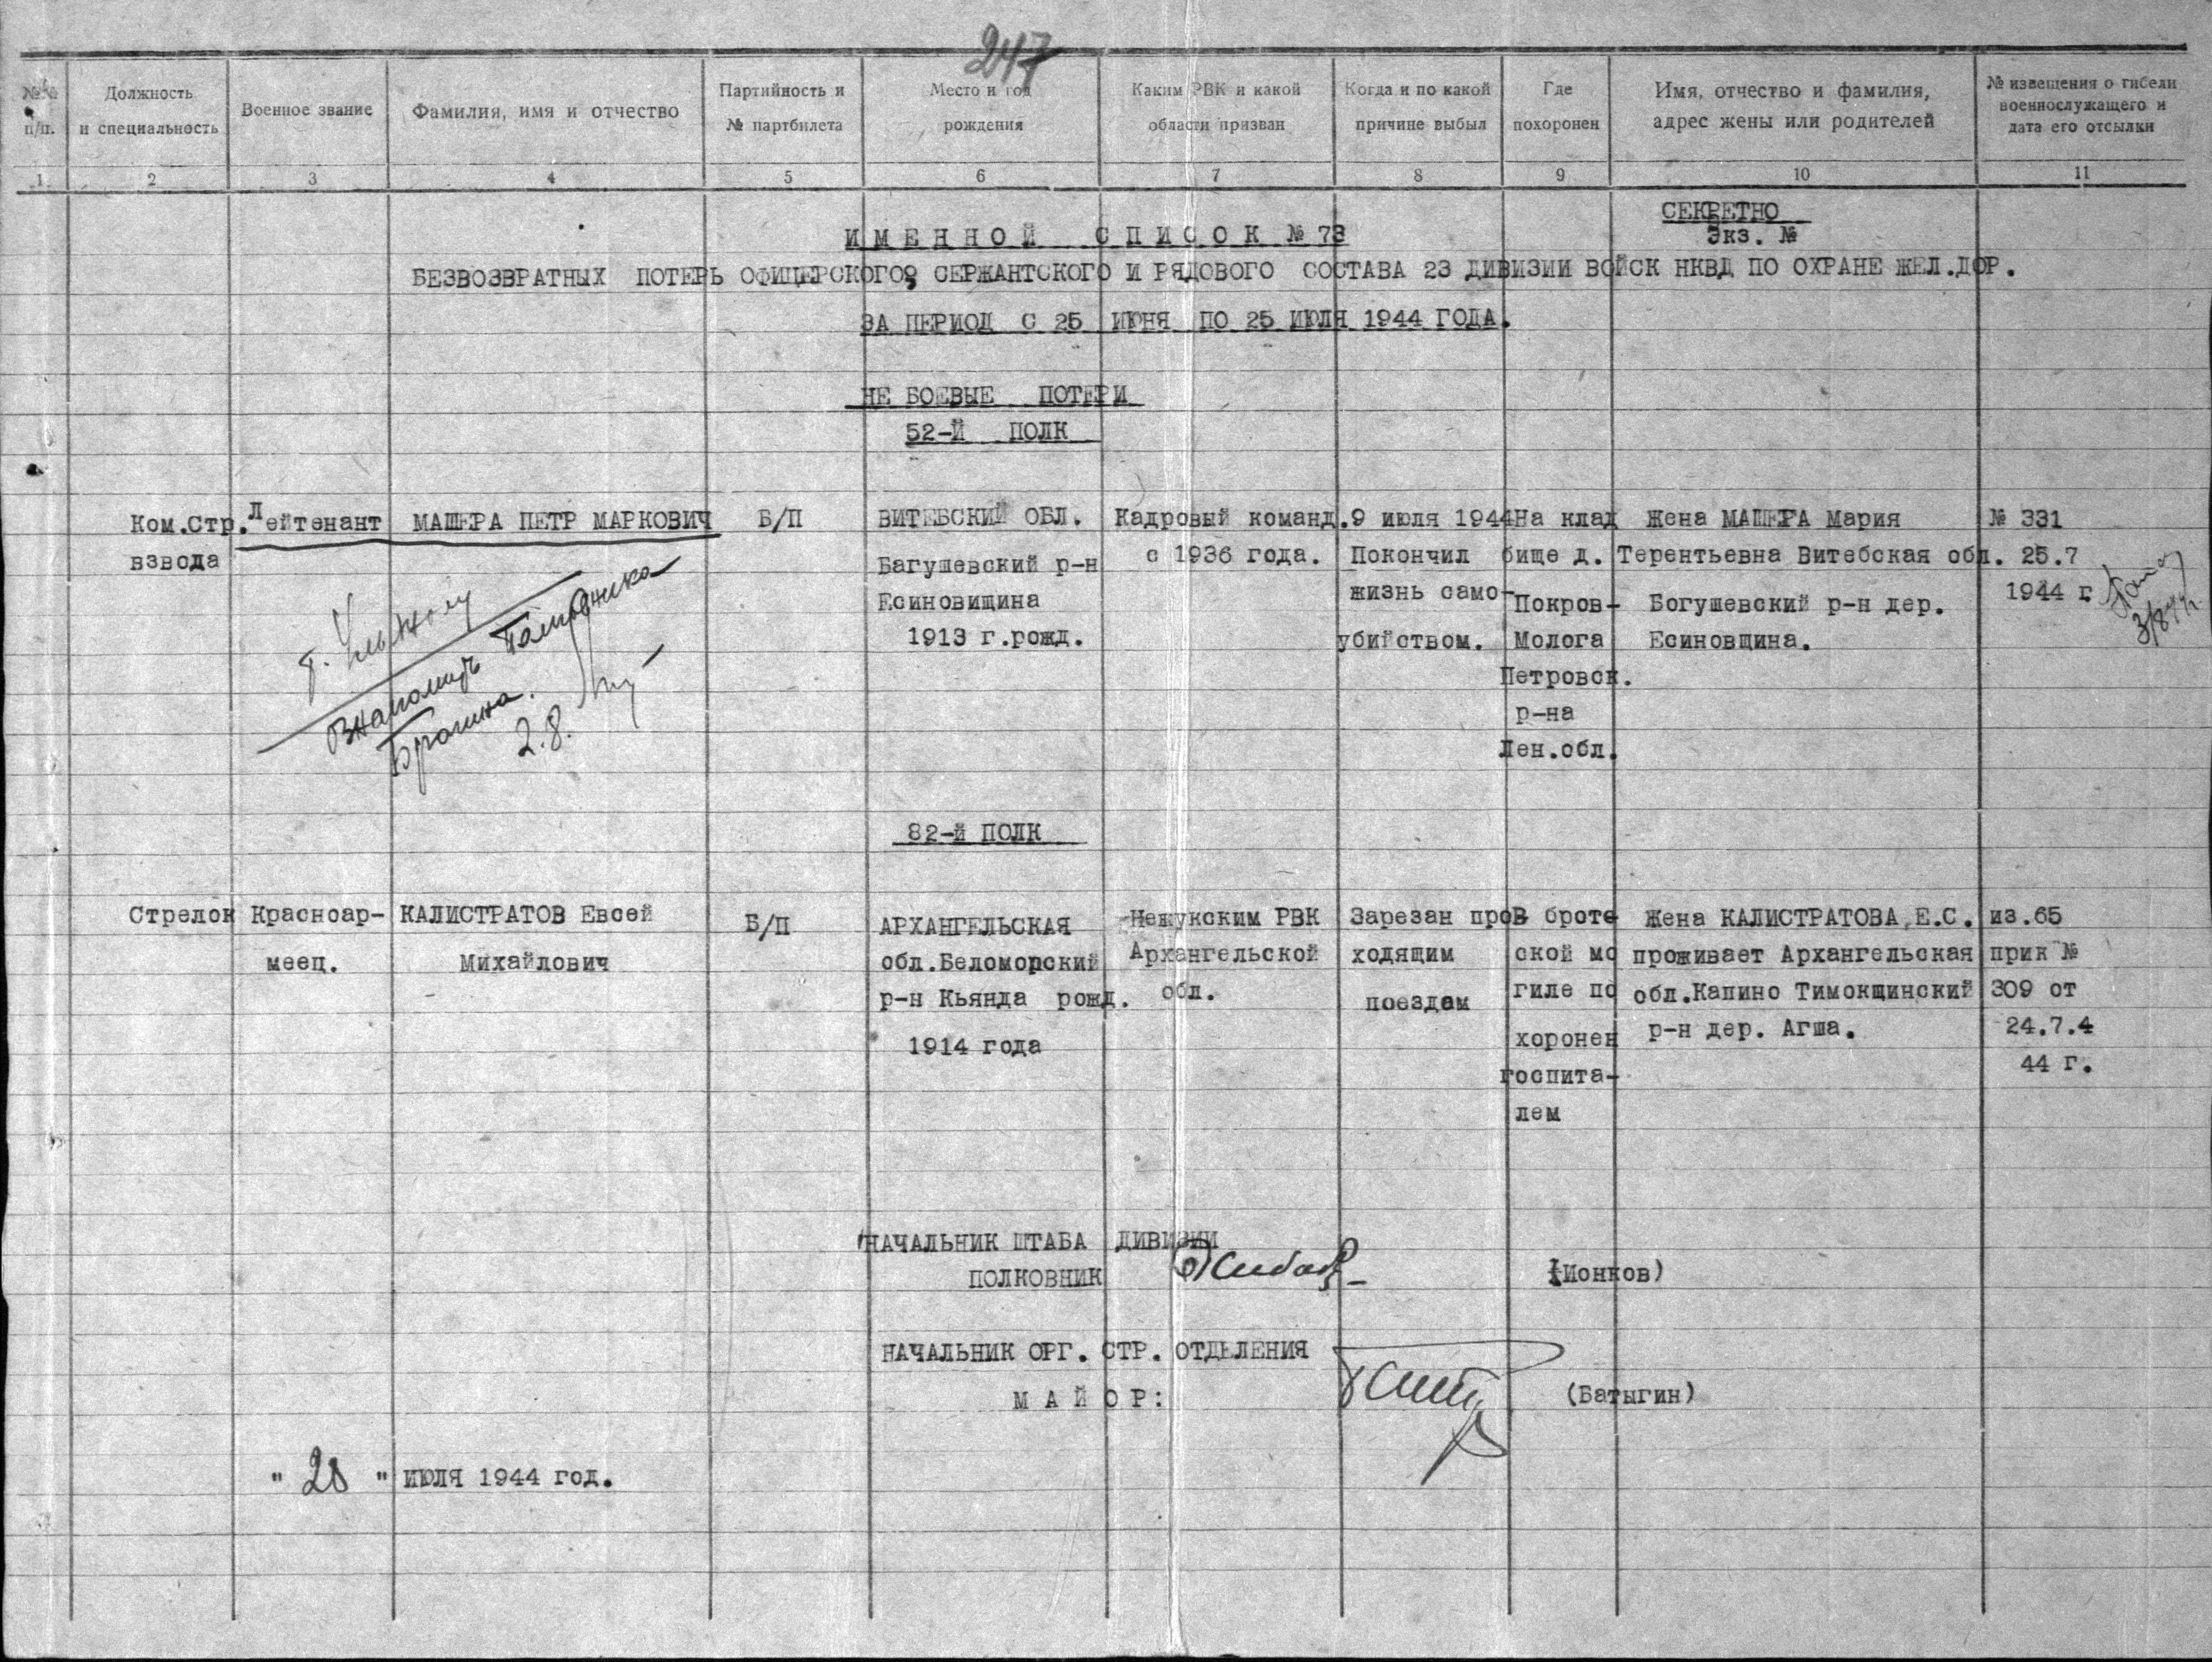 247
№№ п/п.
Должность и специальность
Военное звание
Фамилия, имя и отчество
Партийность и № партбилета
Место и год рождения
Каким РВК и какой области призван
Когда и по какой причине выбыл
Где похоронен
Имя, отчество и фамилия, адрес жены или родителей
№ извещения о гибели военнослужащего и дата его отсылки
1 2 3 4 5 6 7 8 9 10 11
СЕКРЕТНО
Экз. №
ИМЕННОЙ СПИСОК № 73
БЕЗВОЗВРАТНЫХ ПОТЕРЬ ОФИЦЕРСКОГО, СЕРЖАНТСКОГО И РЯДОВОГО СОСТАВА 23 ДИВИЗИИ ВОЙСК НКВД ПО ОХРАНЕ ЖЕЛ.ДОР.
ЗА ПЕРИОД С 25 ИЮНЯ ПО 25 ИЮЛЯ 1944 ГОДА.
НЕ БОЕВЫЕ ПОТЕРИ
52-Й ПОЛК
Ком.Стр.
взвода
Лейтенант
МАШЕРА ПЕТР МАРКОВИЧ
Б/П
ВИТЕБСКИЙ ОБЛ.
Багушевский р-н
Есиновищина
1913 г.рожд.
Кадровый команд.
с 1936 года.
9 июля 1944
Покончил
жизнь само-
убийством.
На клад
бище д.
Покров-
Молога
Петровск.
р-на
Лен.обл.
Жена МАШЕРА Мария
Терентьевна Витебская обл.
Богушевский р-н дер.
Есиновщина.
№ 331
25.7
1944 г.
3/8 44г.
2.8.
82-й ПОЛК
Стрелок
Красноар-
меец.
КАЛИСТРАТОВ Евсей
Михайлович
Б/П
АРХАНГЕЛЬСКАЯ
обл.Беломорский
р-н Кьянда рожд.
1914 года
Нежукским РВК
Архангельской
обл.
Зарезан про
ходящим
поездом
В брате
ской мо
гиле по
хоронен
госпита-
лем
Жена КАЛИСТРАТОВА,Е.С.
проживает Архангельская
обл.Капино Тимокщинский
р-н дер. Агша.
из.65
прик №
309 от
24.7.4
44 г.
НАЧАЛЬНИК ШТАБА ДИВИЗИИ
ПОЛКОВНИК
(Ионков)
НАЧАЛЬНИК ОРГ. СТР. ОТДЕЛЕНИЯ
МАЙОР:
(Батыгин)
"28" ИЮЛЯ 1944 год.